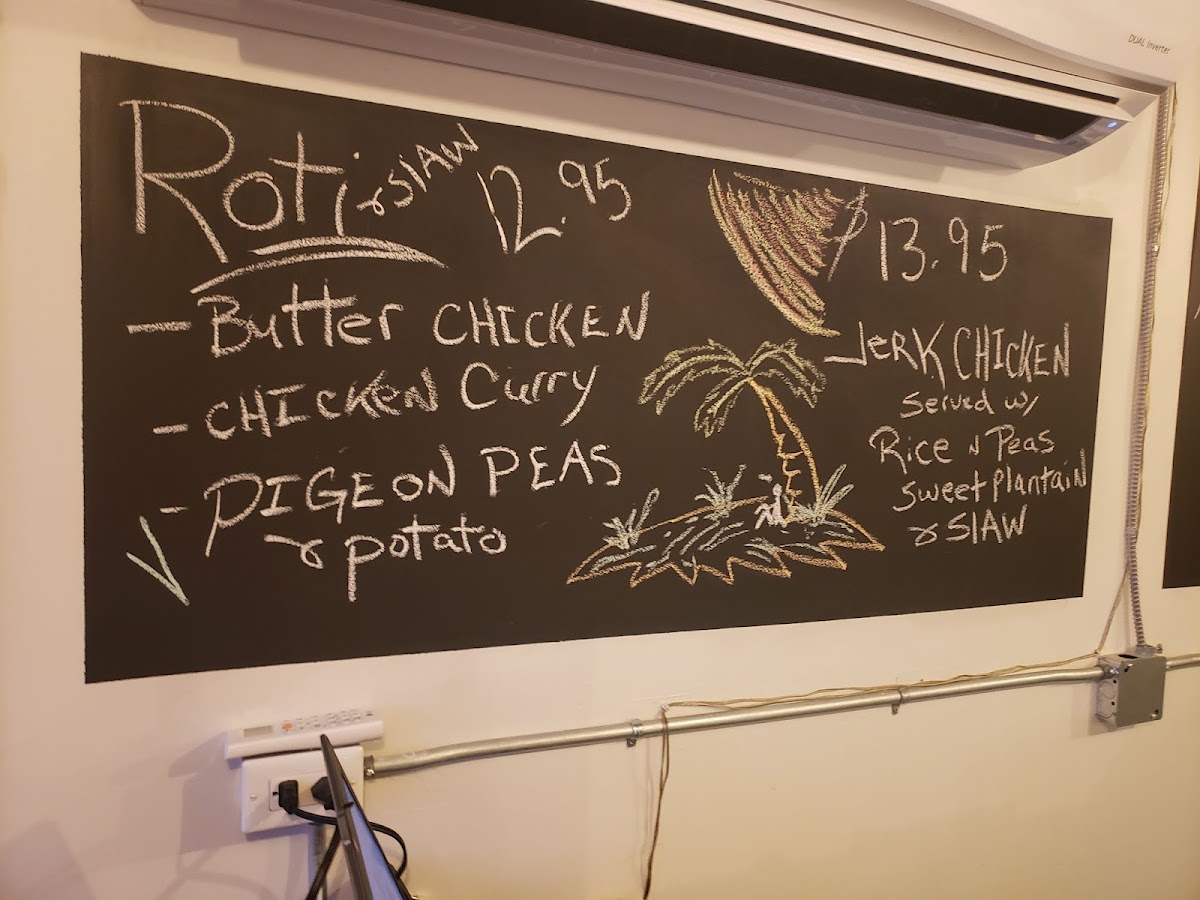 Roti & SLAW 12.95
- Butter CHICKEN
- CHICKEN Curry
- PIGEON PEAS
& potato
$13.95
JERK CHICKEN
Served w/
Rice N Peas
Sweet plantain
& SLAW
DUAL Inverter